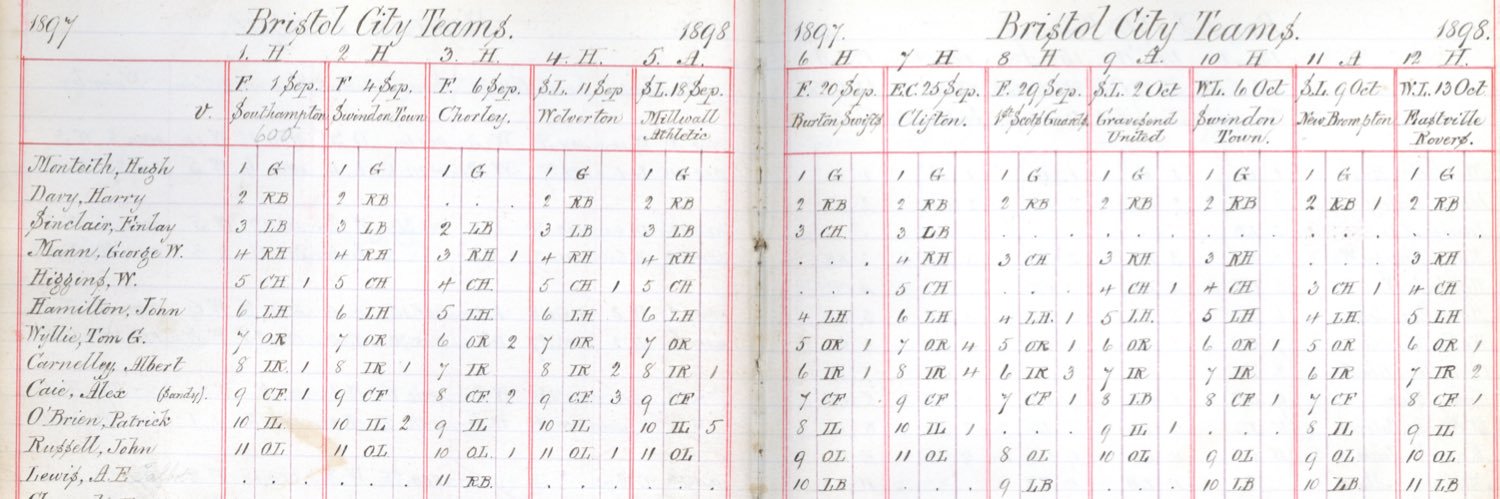 1897 Bristol City Teams. 1898 1897. Bristol City Teams. 1898.
1. H 2 H 3. H. 4. H. 5. A. 6 H 7 H 8 H 9 A. 10 H 11 A 12 H.
F. 1 Sep. F 4 Sep. F. 6 Sep. S.L. 11 Sep S.L. 18 Sep. F. 20 Sep. F.C. 25 Sep. F. 29 Sep. S.L. 2 Oct W.L. 6 Oct S.L. 9 Oct W.L. 13 Oct
v. Southampton Swindon Town Chorley. Wolverton Millwall Athletic Burton Swifts Clifton. 1st Scots Guards. Gravesend United Swindon Town. New Brompton Eastville Rovers.
600
Monteith, Hugh 1 G 1 G 1 G 1 G 1 G 1 G 1 G 1 G 1 G 1 G 1 G 1 G
Davy, Harry 2 RB 2 RB . . . 2 RB 2 RB 2 RB 2 RB 2 RB 2 RB 2 RB 2 RB 1 2 RB
Sinclair, Finlay 3 LB 3 LB 2 LB 3 LB 3 LB 3 CH. 3 LB . . . . . . . . . . . . . . .
Mann, George W. 4 RH 4 RH 3 RH 1 4 RH 4 RH . . . 4 RH 3 CH 3 RH 3 RH . . . 3 RH
Higgins, W. 5 CH 1 5 CH 4 CH. 5 CH 1 5 CH . . . 5 CH . . . 4 CH 1 4 CH 3 CH 1 4 CH
Hamilton, John 6 LH 6 LH 5 LH. 6 LH 6 LH 4 LH 6 LH 4 LH. 1 5 LH. 5 LH 4 LH. 5 LH
Wyllie, Tom G. 7 OR 7 OR 6 OR 2 7 OR 7 OR 5 OR 1 7 OR 4 5 OR 1 6 OR 6 OR 1 5 OR 6 OR 1
Carnelley, Albert 8 IR 1 8 IR 1 7 IR 8 IR 2 8 IR 1 6 IR 1 8 IR 4 6 IR 3 7 IR 7 IR 6 IR 7 IR 2
Caie, Alex (Sandy). 9 CF 1 9 CF 8 CF 2 9 CF. 3 9 CF 7 CF 9 CF 7 CF 1 8 LB 8 CF 1 7 CF 8 CF. 1
O'Brien, Patrick 10 IL. 10 IL 2 9 IL 10 IL 10 IL 5 8 IL 10 IL 1 . . . 9 IL 1 . . . 8 IL 9 IL
Russell, John 11 OL 11 OL 10 OL. 1 11 OL 1 11 OL 9 OL. 11 OL 8 OL 10 OL 9 OL 9 OL 10 OL
Lewis, A.E . . . . . . 11 RB. . . . . . . 10 LB . . . 9 LB . . . 10 LB 10 LB. 11 LB